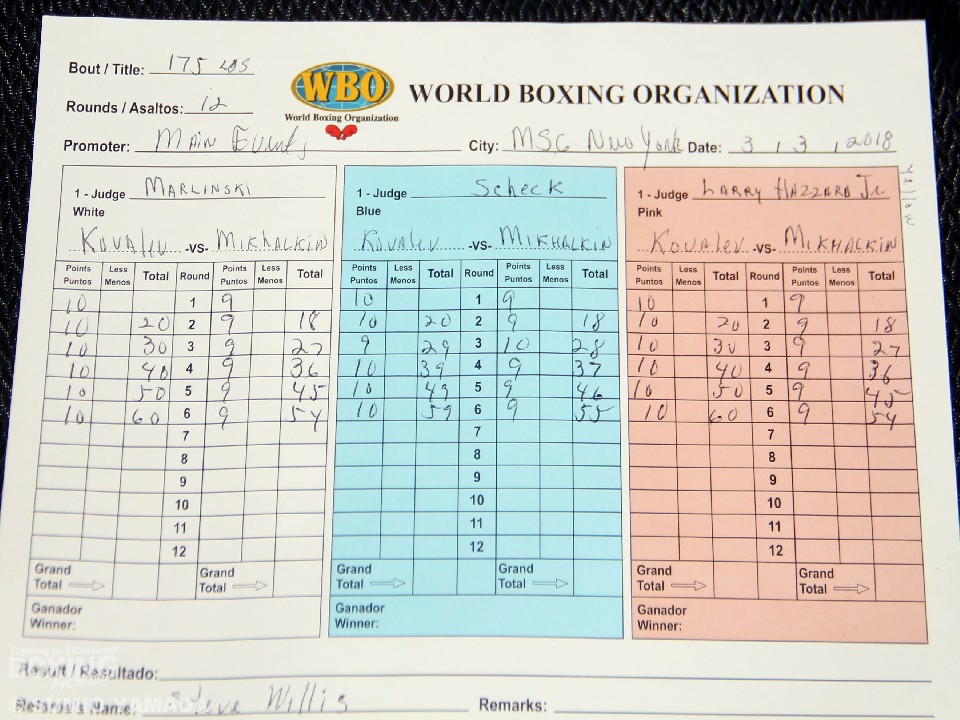 Bout / Title: 175 LBS
WBO
WORLD BOXING ORGANIZATION
Rounds / Asaltos: 12
World Boxing Organization
Promoter: Main Events City: MSG New York Date: 3 / 3 / 2018
1 - Judge MARLINSKI 1 - Judge Scheck 1 - Judge LARRY HAZZARD Jr Yellow
White Blue Pink
Kovalev -VS- MIKHALKIN Kovalev -VS- MIKHALKIN Kovalev -VS- MIKHALKIN
Points Puntos Less Menos Total Round Points Puntos Less Menos Total Points Puntos Less Menos Total Round Points Puntos Less Menos Total Points Puntos Less Menos Total Round Points Puntos Less Menos Total
10 1 9 10 1 9 10 1 9
10 20 2 9 18 10 20 2 9 18 10 20 2 9 18
10 30 3 9 27 9 29 3 10 28 10 30 3 9 27
10 40 4 9 36 10 39 4 9 37 10 40 4 9 36
10 50 5 9 45 10 49 5 9 46 10 50 5 9 45
10 60 6 9 54 10 59 6 9 55 10 60 6 9 54
7 7 7
8 8 8
9 9 9
10 10 10
11 11 11
12 12 12
Grand Total Grand Total Grand Total Grand Total Grand Total Grand Total
Ganador Ganador Ganador
Winner: Winner: Winner:
Fighting in 4 Corners!
BOXING
Result / Resultado:
YAMADA
Referee's Name: Steve Willis Remarks: